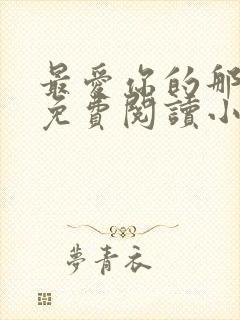 最愛你的那
免費閱讀小
夢青衣